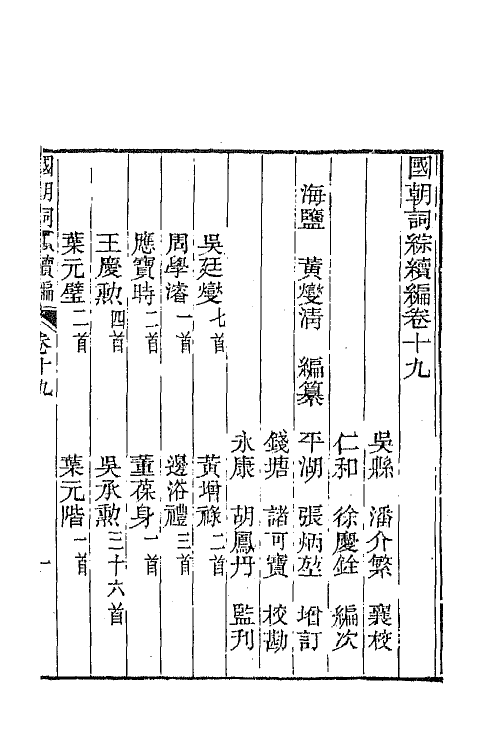 國朝詞綜續編卷十九
吳縣 潘介繁 襄校
仁和 徐慶銓 編次
海鹽 黃燮清 編纂 平湖 張炳堃 增訂
錢塘 諸可寶 校勘
永康 胡鳳丹 監刊
吳廷燮七首 黃增祿二首
周學濬一首 邊浴禮三首
應寶時二首 董葆身一首
王慶勲四首 吳承勲三十六首
葉元璧二首 葉元階一首
國朝詞綜續編 卷十九 一